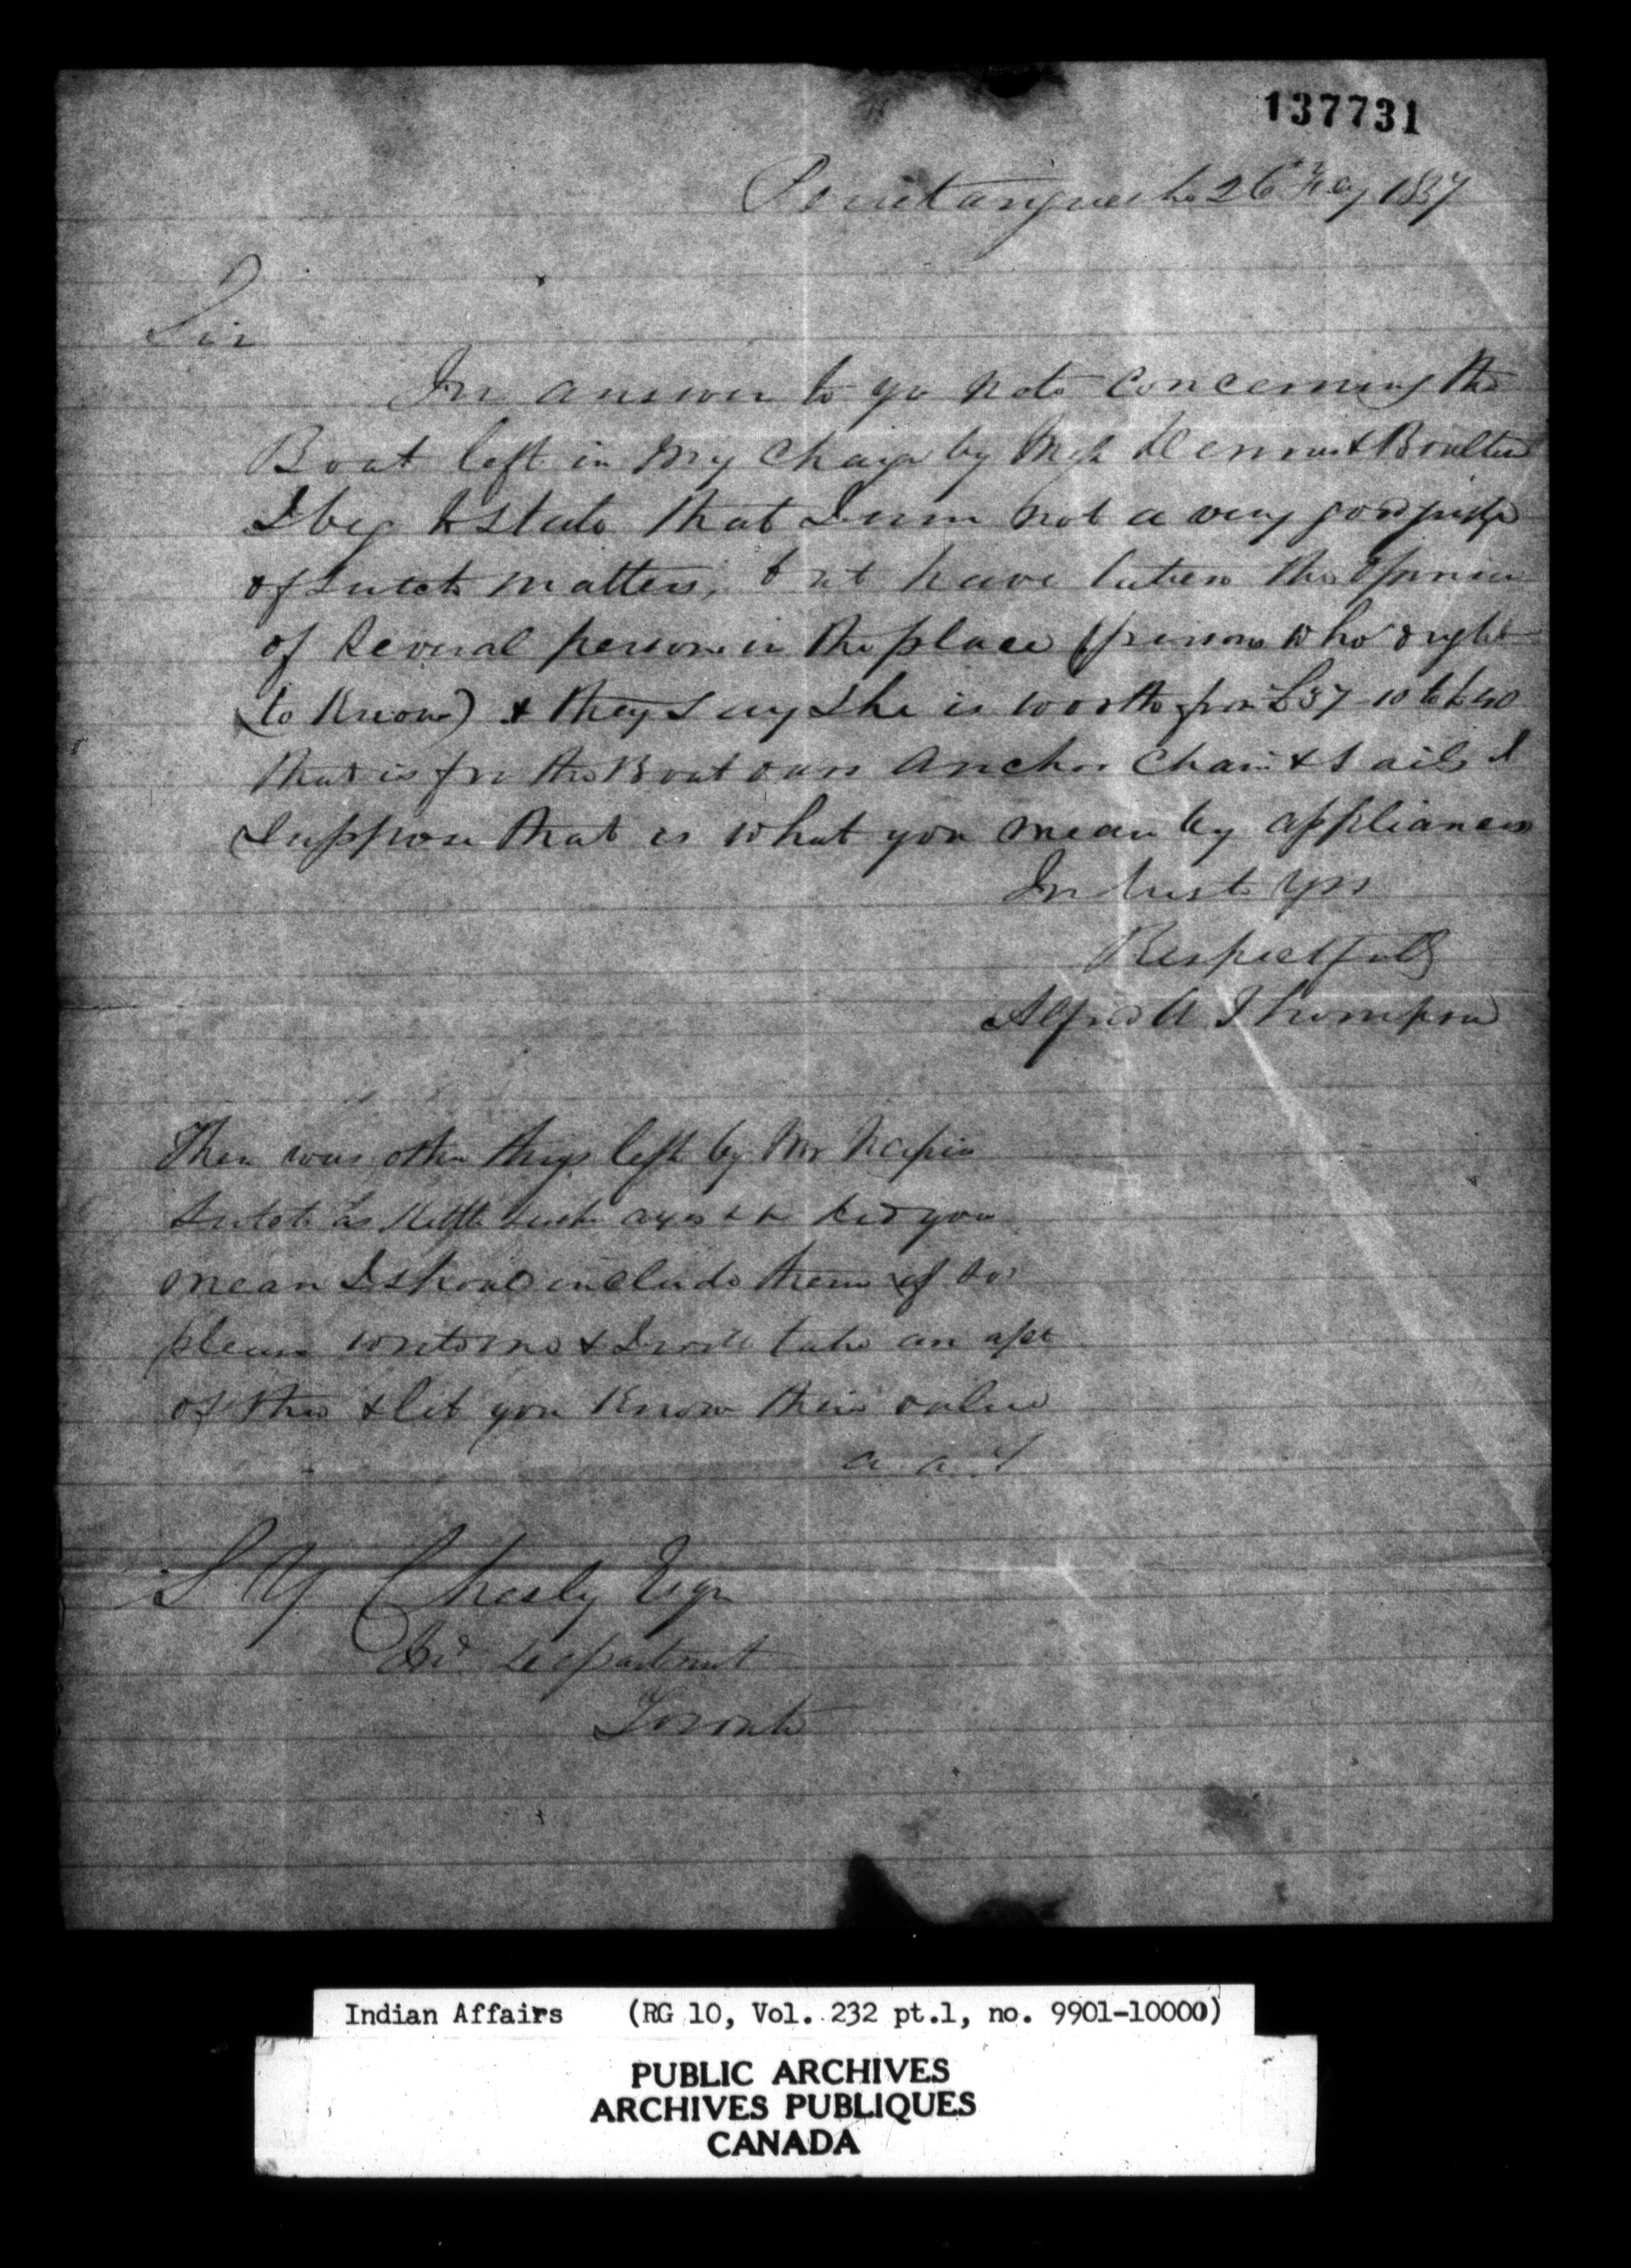 137731
Penetanguishe 26 Feby 1857
Sir
In answer to yr note concerning the
Boat left in my charge by Dennis & Boulton
I beg to state that I am not a very good judge
of sutch matters, but have taken the opinion
of several persons in the place (persons who ought
to know) & they say she is worth from £37-10 to £40
that is for the Boat oars anchor chain & sails I
suppose that is what you mean by appliances
In haste yrs
Respectfully
Alfred A Thompson
Ther was other things left by Mr Napier
sutch as Kettle axes &c did you
mean I should include them if so
please write me & I will take an
of them & let you know their value
A. A. T
S. Y. Chesly Esqr
Ind Department
Toronto
Indian Affairs (RG 10, Vol. 232 pt.1, no. 9901-10000)
PUBLIC ARCHIVES
ARCHIVES PUBLIQUES
CANADA